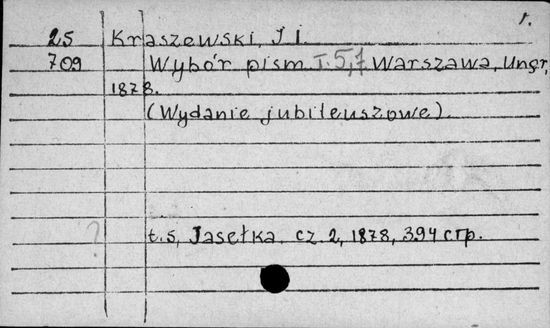 1.
25 Kraszewski, J I.
709 Wybór pism. T. 5,7 Warszawa, Ungr,
1878.
(Wydanie jubileuszowe).
?
t. 5, Jasełka. cz. 2, 1878, 394 стр.